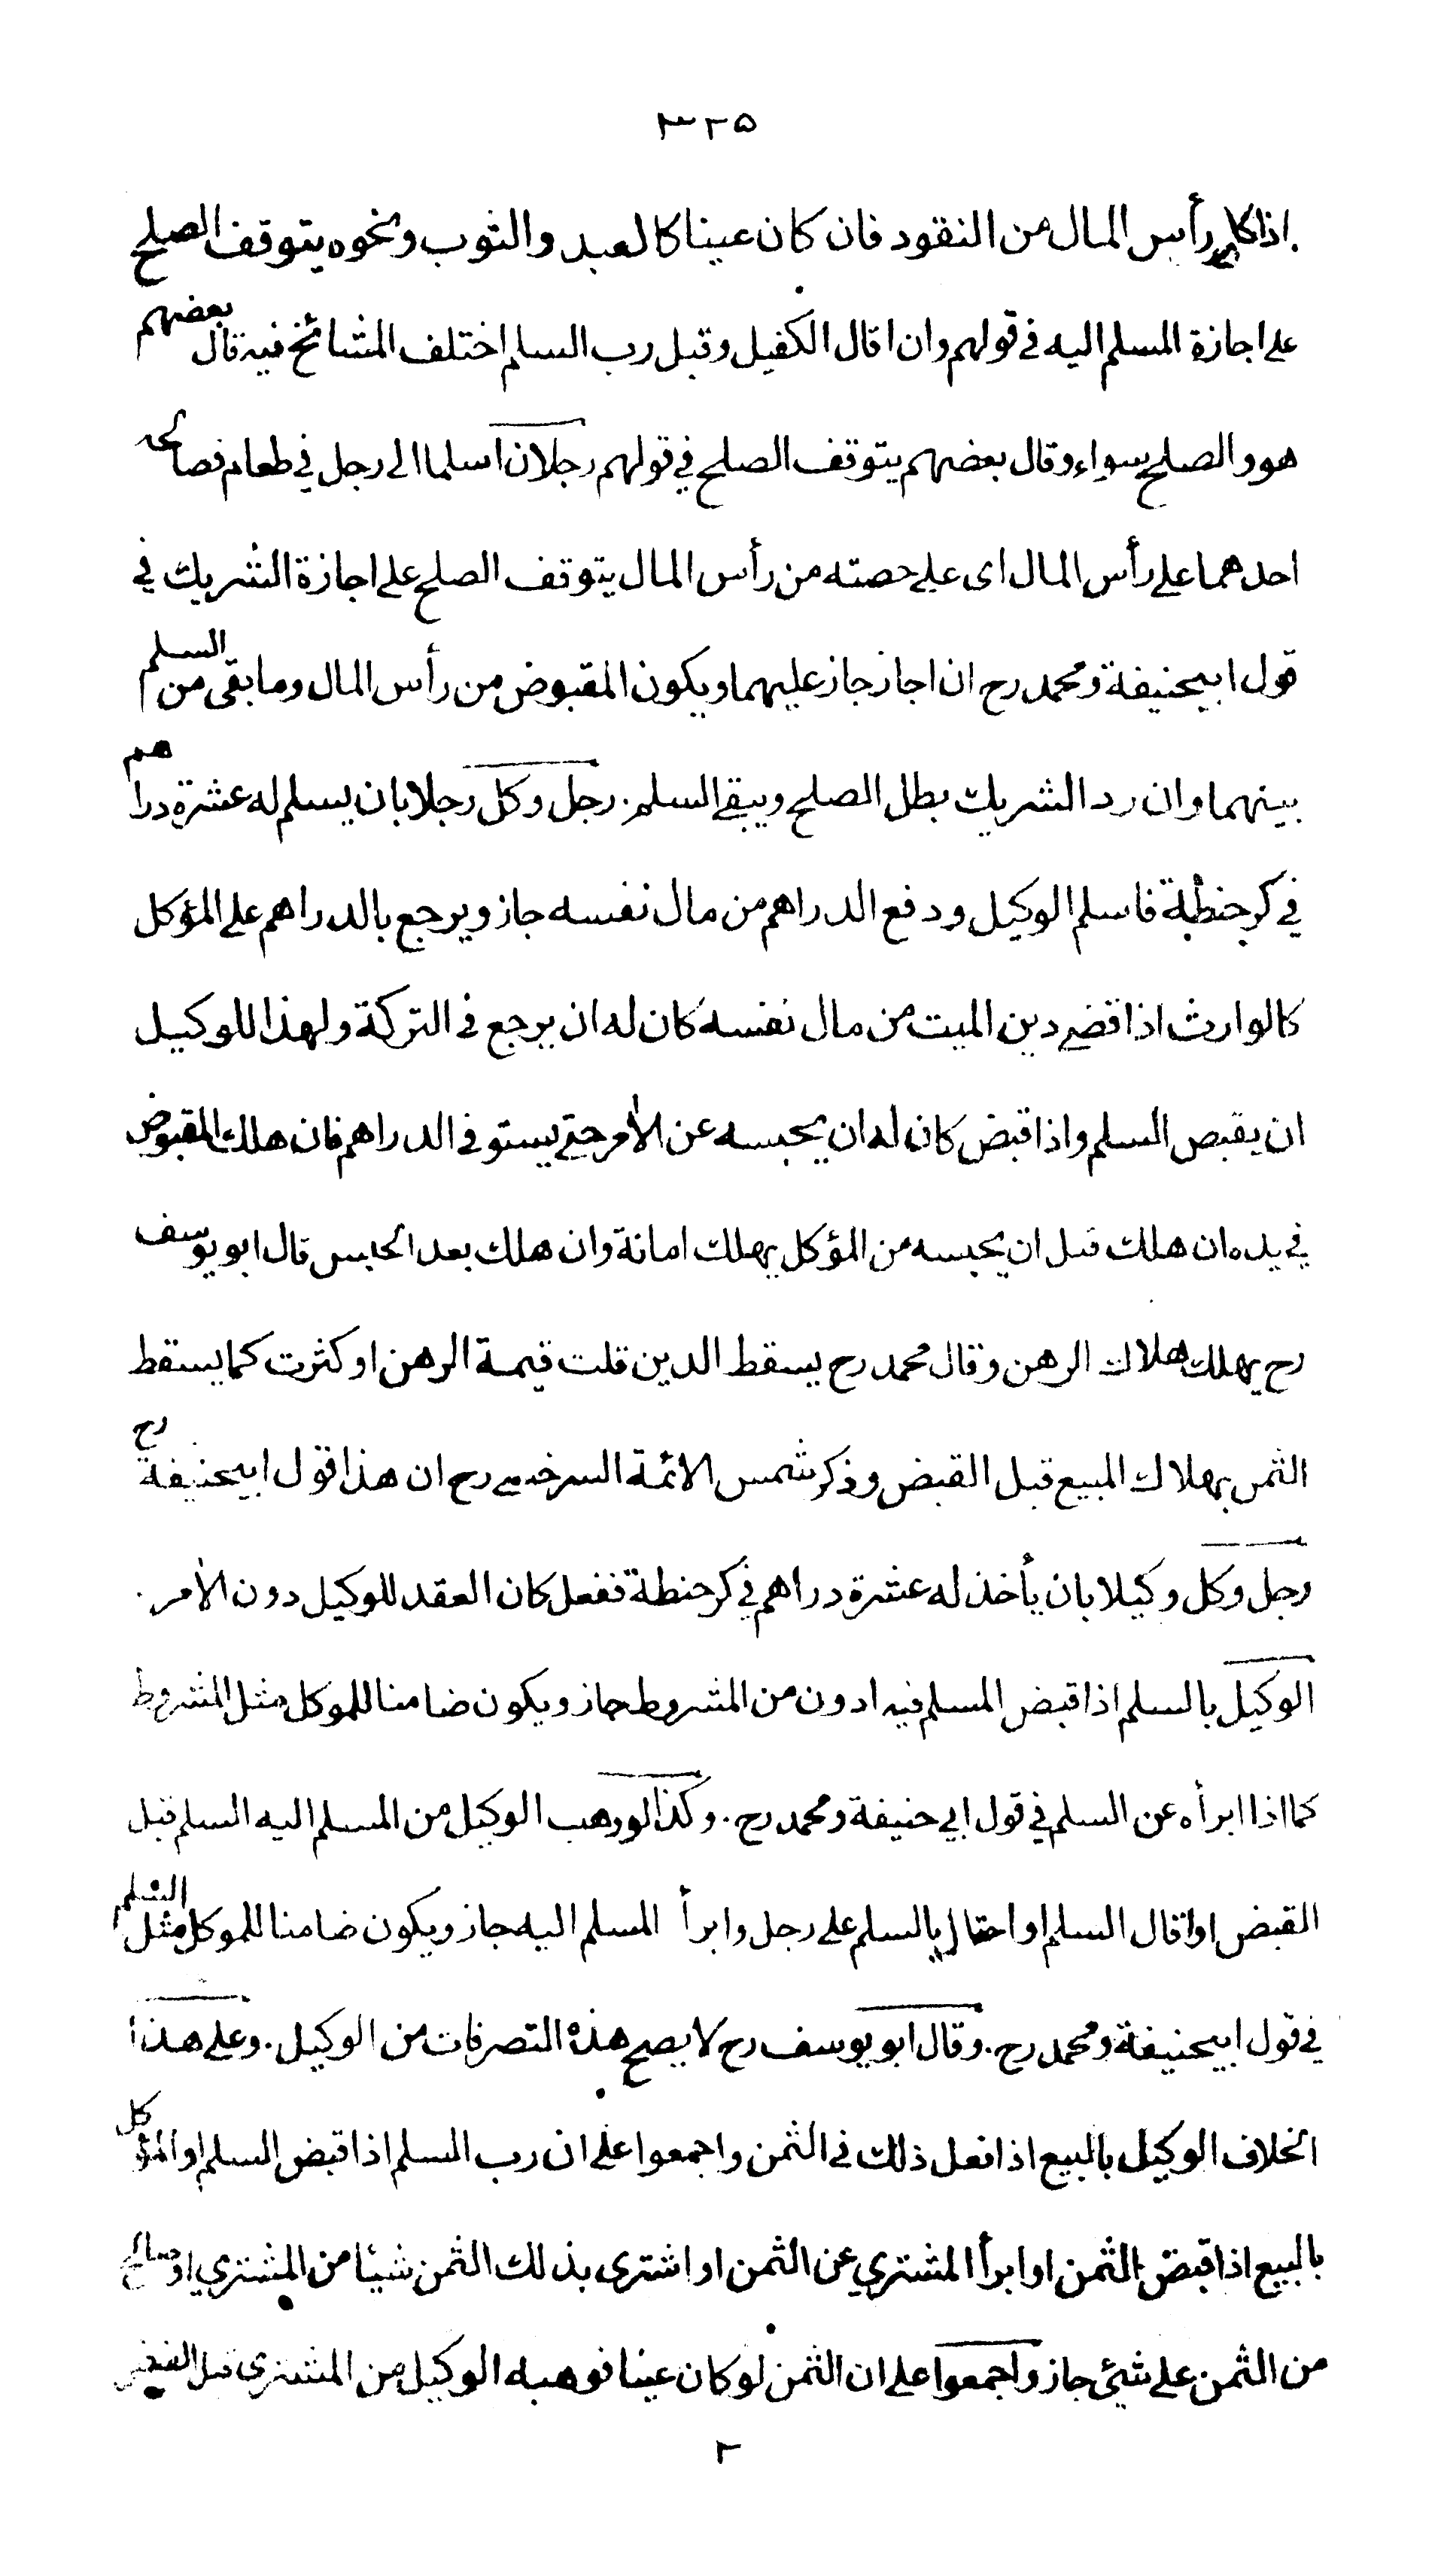 ٣٢٥
اذا كان رأس المال من النقود فان كان عينا كالعبد والثوب ونحوه يتوقف الصلح
على اجازة المسلم اليه في قولهم وان اقال الكفيل وقبل رب السلم اختلف المشائخ فيه قال بعضهم
هو والصلح سواء وقال بعضهم يتوقف الصلح في قولهم رجلان اسلما الى رجل في طعام فصالحه
احدهما على رأس المال اى على حصته من رأس المال يتوقف الصلح على اجازة الشريك في
قول ابيحنيفة ومحمد رح ان اجاز جاز عليهما ويكون المقبوض من رأس المال وما بقى من السلم
بينهما وان رد الشريك بطل الصلح ويبقى السلم . رجل وكل رجلا بان يسلم له عشرة دراهم
في كر حنطة فاسلم الوكيل ودفع الدراهم من مال نفسه جاز ويرجع بالدراهم على المؤكل
كالوارث اذا قضى دين الميت من مال نفسه كان له ان يرجع في التركة ولهذا للوكيل
ان يقبض السلم واذا قبض كان له ان يحبسه عن الأمر حتى يستوفي الدراهم فان هلك المقبوض
في يده ان هلك قبل ان يحبسه من المؤكل يهلك امانة وان هلك بعد الحبس قال ابو يوسف
رح يهلك هلاك الرهن وقال محمد رح يسقط الدين قلت قيمة الرهن او كثرت كما يسقط
الثمن بهلاك المبيع قبل القبض وذكر شمس الائمة السرخسي رح ان هذا قول ابيحنيفة رح
رجل وكل وكيلا بان يأخذ له عشرة دراهم في كر حنطة ففعل كان العقد للوكيل دون الأمر .
الوكيل بالسلم اذا قبض المسلم فيه ادون من المشروط جاز ويكون ضامنا للموكل مثل المشروط
كما اذا ابرأه عن السلم في قول ابي حنيفة ومحمد رح . وكذا لو وهب الوكيل من المسلم اليه السلم قبل
القبض او اقال السلم او احتال بالسلم على رجل وابرأ المسلم اليه جاز ويكون ضامنا للموكل مثل السلم
في قول ابيحنيفة ومحمد رح . وقال ابو يوسف رح لا يصح هذه التصرفات من الوكيل . وعلى هذا
الخلاف الوكيل بالبيع اذا فعل ذلك في الثمن واجمعوا على ان رب السلم اذا قبض السلم او المؤكل
بالبيع اذا قبض الثمن او ابرأ المشتري عن الثمن او اشترى بذلك الثمن شيئا من المشتري او صالح
من الثمن على شيئ جاز واجمعوا على ان الثمن لو كان عينا فوهبه الوكيل من المشترى قبل القبض
٢